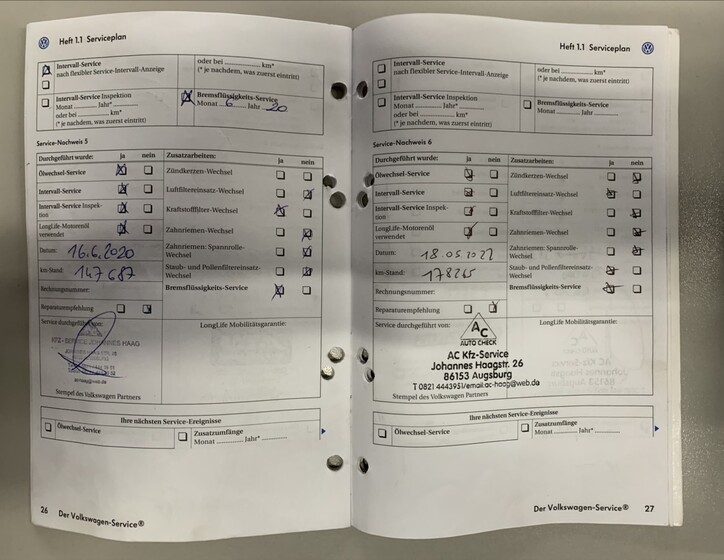 Heft 1.1 Serviceplan
Intervall-Service
nach flexibler Service-Intervall-Anzeige
oder bei km*
(* je nachdem, was zuerst eintritt)
Intervall-Service Inspektion
Monat Jahr*
oder bei km*
(* je nachdem, was zuerst eintritt)
Bremsflüssigkeits-Service
Monat 6 Jahr 20
Service-Nachweis 5
Durchgeführt wurde: ja nein
Ölwechsel-Service
Intervall-Service
Intervall-Service Inspek-
tion
LongLife-Motorenöl
verwendet
Datum: 16.6.2020
km-Stand: 147687
Rechnungsnummer:
Reparaturempfehlung
Zusatzarbeiten: ja nein
Zündkerzen-Wechsel
Luftfiltereinsatz-Wechsel
Kraftstofffilter-Wechsel
Zahnriemen-Wechsel
Zahnriemen: Spannrolle-
Wechsel
Staub- und Pollenfiltereinsatz-
Wechsel
Bremsflüssigkeits-Service
Service durchgeführt von:
KFZ-SERVICE JOHANNES HAAG
Stempel des Volkswagen Partners
LongLife Mobilitätsgarantie:
Ihre nächsten Service-Ereignisse
Ölwechsel-Service
Zusatzumfänge
Monat Jahr*
26 Der Volkswagen-Service®
Heft 1.1 Serviceplan
Intervall-Service
nach flexibler Service-Intervall-Anzeige
oder bei km*
(* je nachdem, was zuerst eintritt)
Intervall-Service Inspektion
Monat Jahr*
oder bei km*
(* je nachdem, was zuerst eintritt)
Bremsflüssigkeits-Service
Monat Jahr
Service-Nachweis 6
Durchgeführt wurde: ja nein
Ölwechsel-Service
Intervall-Service
Intervall-Service Inspek-
tion
LongLife-Motorenöl
verwendet
Datum: 18.05.2022
km-Stand: 178265
Rechnungsnummer:
Reparaturempfehlung
Zusatzarbeiten: ja nein
Zündkerzen-Wechsel
Luftfiltereinsatz-Wechsel
Kraftstofffilter-Wechsel
Zahnriemen-Wechsel
Zahnriemen: Spannrolle-
Wechsel
Staub- und Pollenfiltereinsatz-
Wechsel
Bremsflüssigkeits-Service
Service durchgeführt von:
AC
AUTO CHECK
AC Kfz-Service
Johannes Haagstr. 26
86153 Augsburg
T 0821 4443951/email:ac-haag@web.de
Stempel des Volkswagen Partners
LongLife Mobilitätsgarantie:
Ihre nächsten Service-Ereignisse
Ölwechsel-Service
Zusatzumfänge
Monat Jahr*
Der Volkswagen-Service® 27